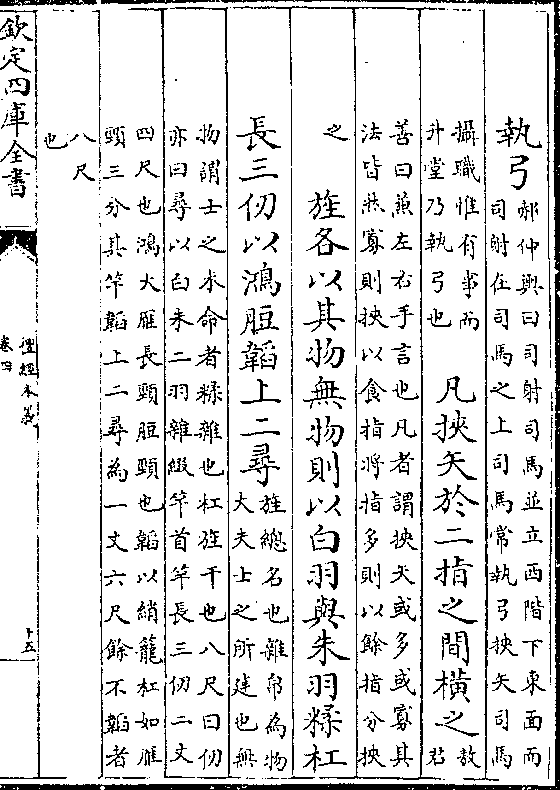 執弓
郝仲輿曰司射司馬並立西階下東面而
司射在司馬之上司馬常執弓挾矢司馬
攝職惟有事而
升堂乃執弓也
凡挾矢於二指之間橫之
敖
君
善曰兼左右手言也凡者謂挾矢或多或寡其
法皆然寡則挾以食指將指多則以餘指分挾
之
旌各以其物無物則以白羽與朱羽糅杠
長三仞以鴻脰韜上二尋
旌總名也雜帛為物
大夫士之所建也無
物謂士之未命者糅雜也杠旌干也八尺曰仞
亦曰尋以白朱二羽雜綴竿首竿長三仞二丈
四尺也鴻大雁長頸脰頸也韜以綃籠杠如雁
頸三分其竿韜上二尋為一丈六尺餘不韜者
八尺
也
欽定四庫全書
禮經本義
卷四
十五